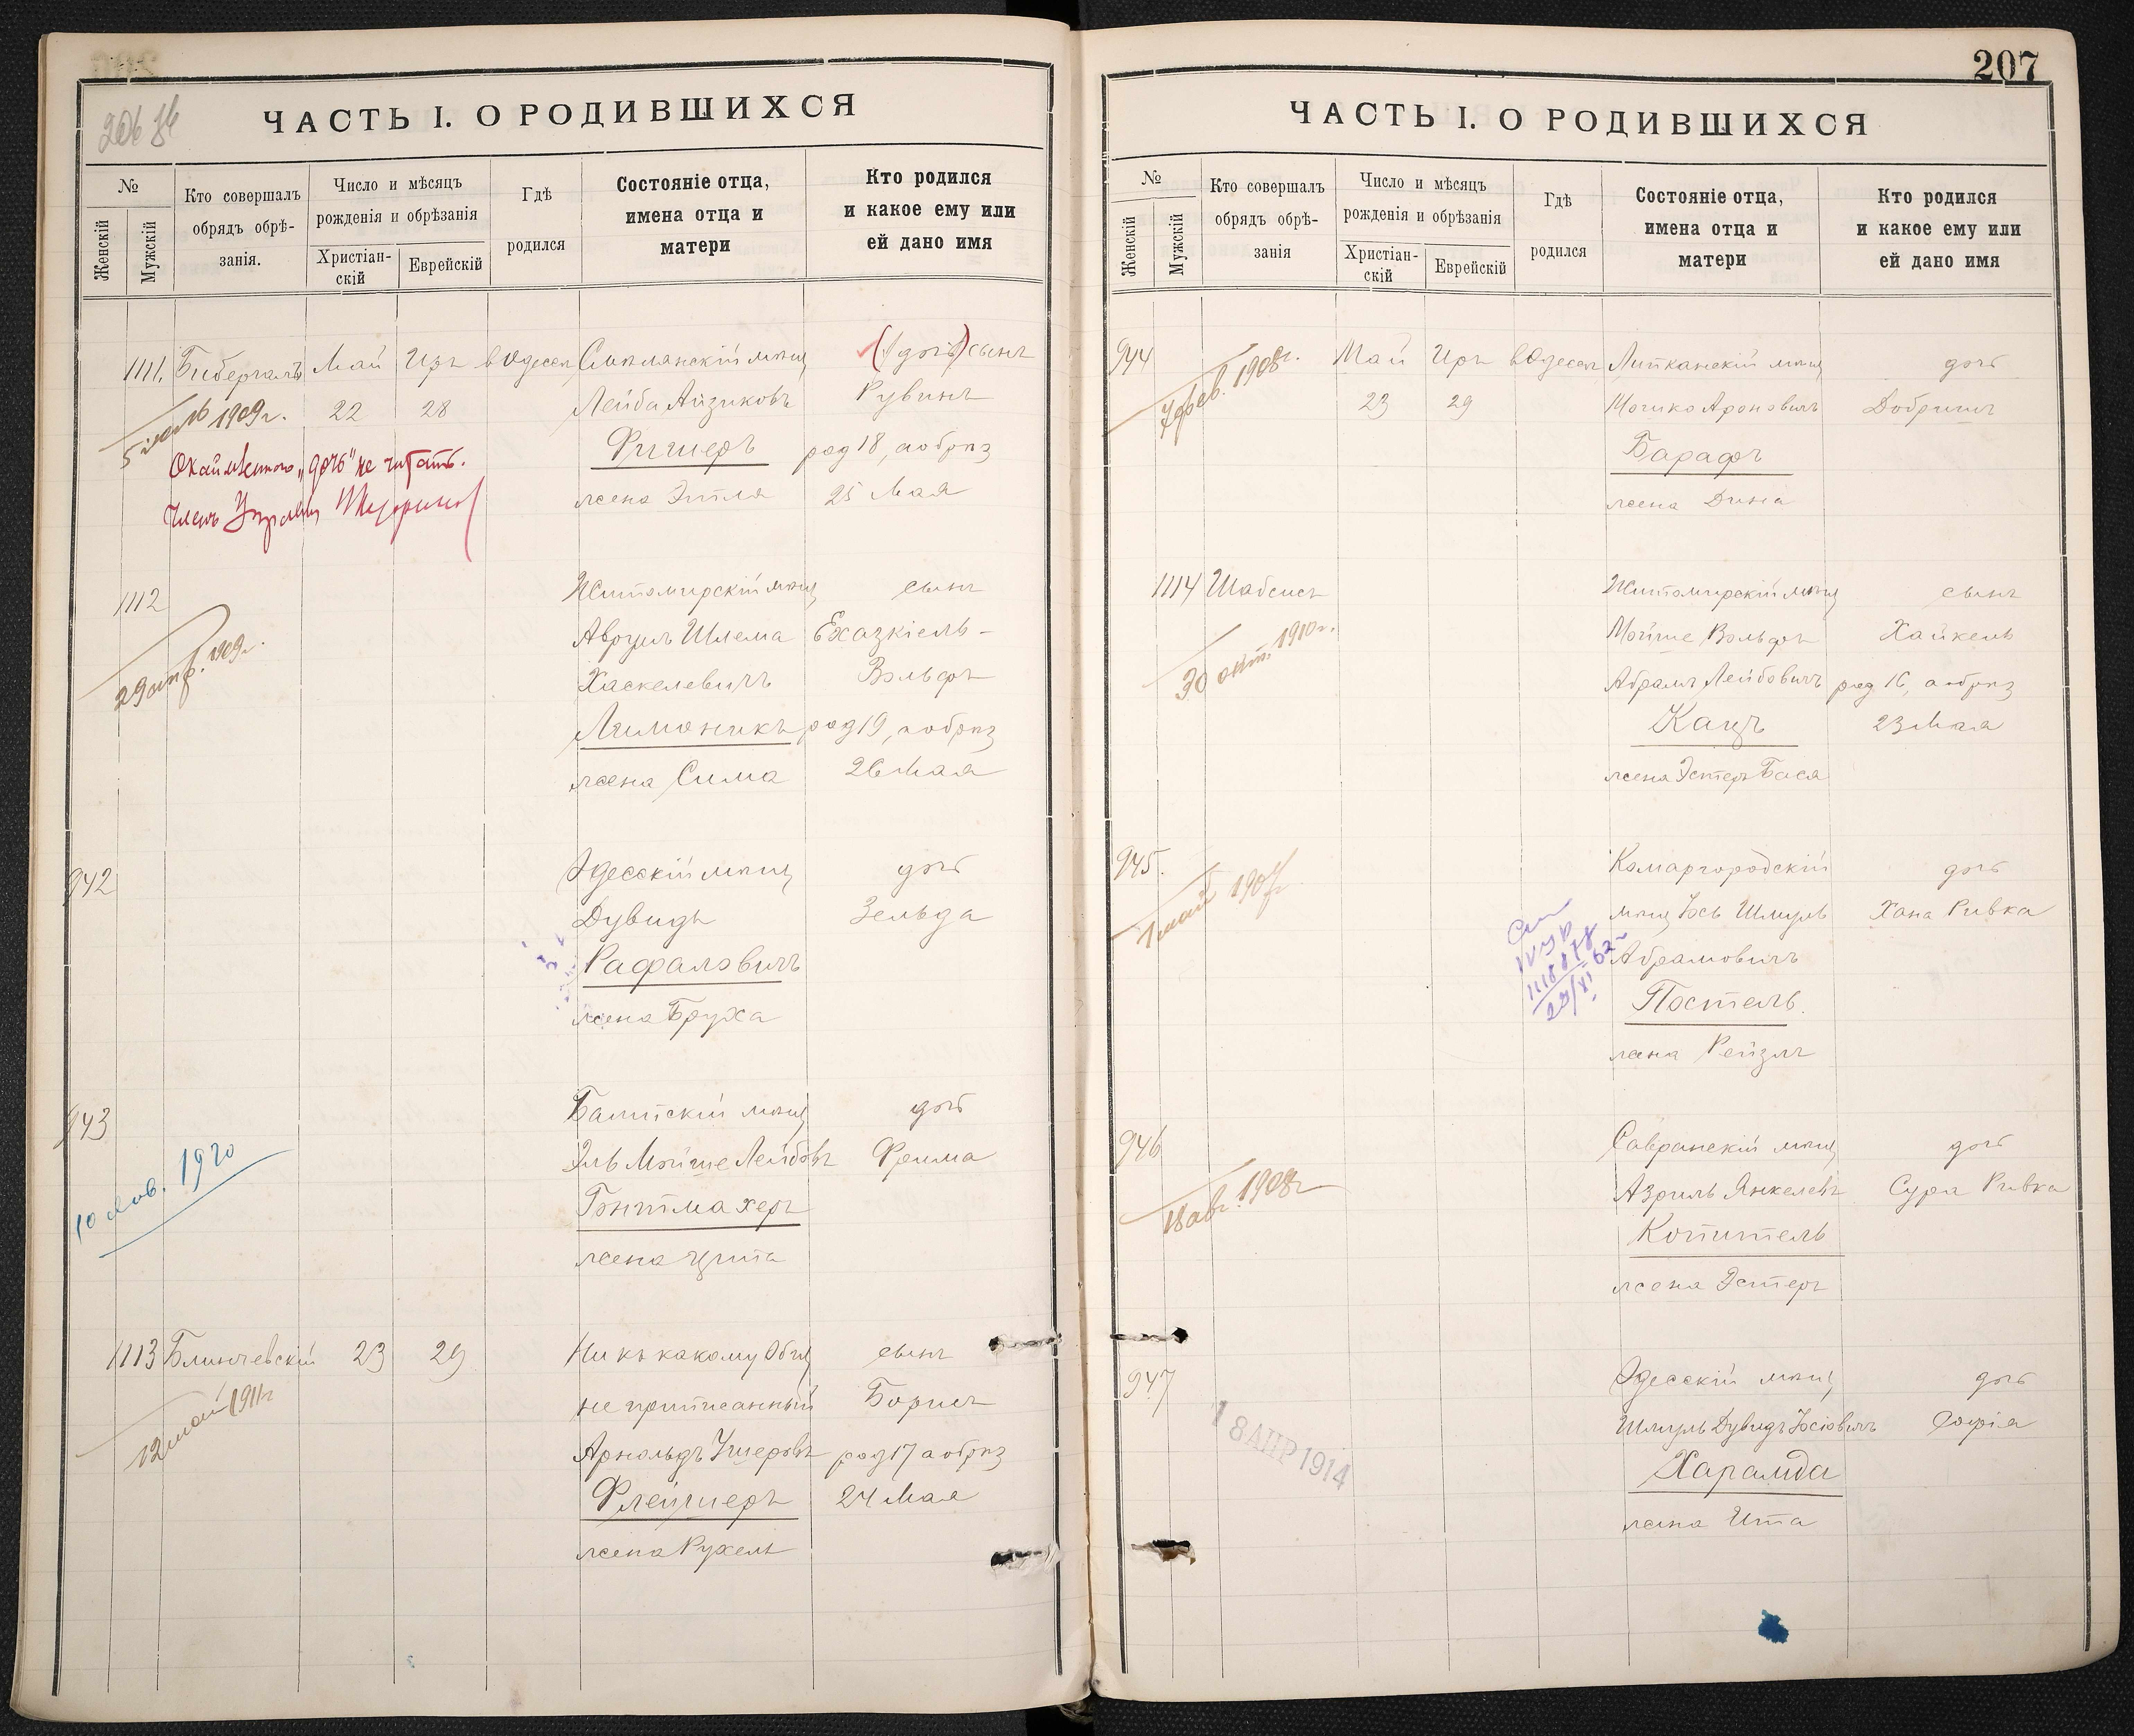 206 об
ЧАСТЬ I. О РОДИВШИХСЯ
№
Женскій
Мужскій
Кто совершалъ
обрядъ обрѣ-
занія.
Число и мѣсяцъ
рожденія и обрѣзанія
Христіан-
скій
Еврейскій
Гдѣ
родился
Состояніе отца,
имена отца и
матери
Кто родился
и какое ему или
ей дано имя
1111. Бибергалъ Май Иръ въ Одессѣ мѣщ (дочь) сынъ
5 1909 г. 22 28 Лейба Айзиковъ Рувинъ
Фишеръ род 18, а обрѣз
жена Этля 25 Мая
Окаймленного "дочь" не читать.
Членъ Управы
1112 Житомирскій мѣщ сынъ
Аврумъ Шлема Ехазкіель-
29 1909 г. Хаскелевичъ Вольфъ
Лимоникъ род 19, а обрѣз
жена Сима 26 Мая
942 Одесскій мѣщ дочь
Дувидъ Зельда
Рафаловичъ
жена Бруха
943 Балтскій мѣщ дочь
Эль Мойше Лейбовъ Фрима
10 1920
Гонтмахеръ
жена Цита
1113 Блинчевскій 23 29 Ни къ какому Общ сынъ
не приписанный Борисъ
12 май 1911 г
Арнольдъ Ушеровъ род 17 а обрѣз
Флейшеръ 24 Мая
жена Рухель
207
ЧАСТЬ I. О РОДИВШИХСЯ
№
Женскій
Мужскій
Кто совершалъ
обрядъ обрѣ-
занія
Число и мѣсяцъ
рожденія и обрѣзанія
Христіан-
скій
Еврейскій
Гдѣ
родился
Состояніе отца,
имена отца и
матери
Кто родился
и какое ему или
ей дано имя
944 Май Иръ въ Одессѣ Липканскій мѣщ дочь
7 фев. 1908 г. 23 29 Мошко Ароновичъ Добришъ
Барафъ
жена Дина
1114 Шабсисъ Житомирскій мѣщ сынъ
30 окт. 1910 г. Мойше Вольфъ Хайкель
Абрамъ Лейбовичъ род 16, а обрѣз
Кацъ 23 Мая
жена Эстеръ Бася
945. Комаргородскій дочь
1 май 1907 г мѣщ Іось Шмуль Хана Ривка
Абрамовичъ
Постель
жена Рейзля
946 Савранскій мѣщ дочь
18 авг. 1908 г Азриль Янкелевъ Сура Ривка
Копитель
жена Эстеръ
947 Одесскій мѣщ дочь
18 АПР 1914
Шмуль Дувидъ Іосіовичъ Софія
Харамда
жена Ита